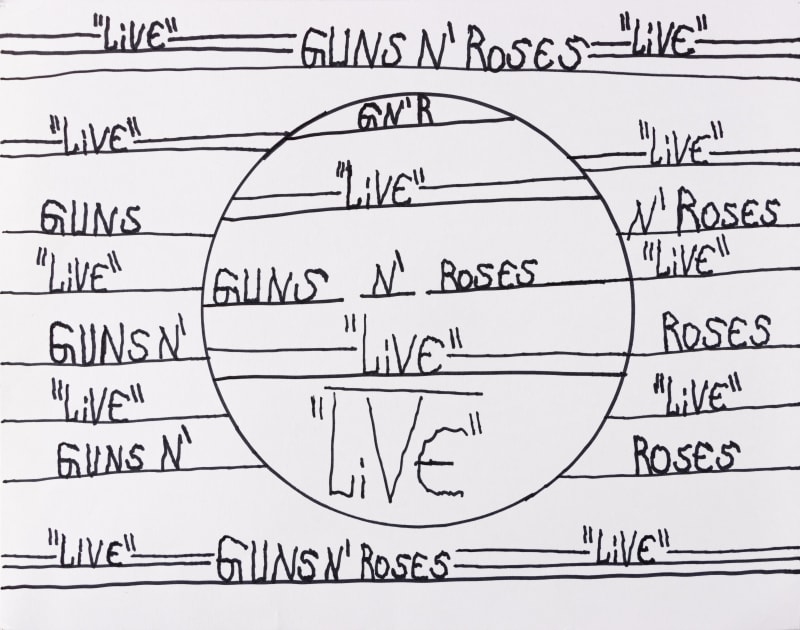 "LiVE" GUNS N' ROSES "LiVE"
GN'R
"LiVE" "LiVE"
"LiVE"
GUNS N' ROSES
"LiVE" "LiVE"
GUNS N' ROSES
GUNS N' "LiVE" ROSES
"LiVE" "LiVE"
"LiVE"
GUNS N' ROSES
"LiVE" GUNS N' ROSES "LiVE"